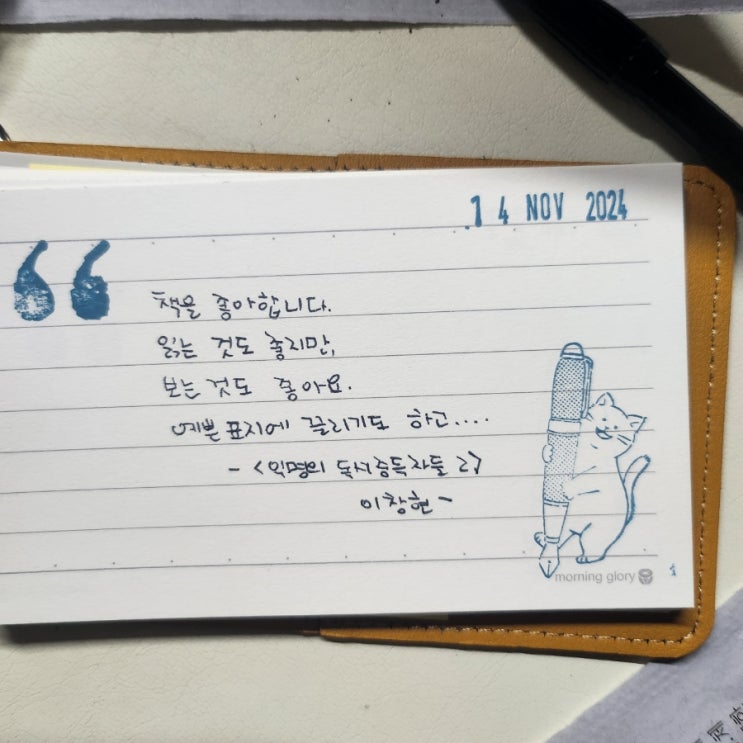 14 NOV 2024
“
책을 좋아합니다.
읽는 것도 좋지만,
보는 것도 좋아요.
예쁜 표지에 끌리기도 하고....
- <익명의 독서중독자들 2>
이창현 -
morning glory